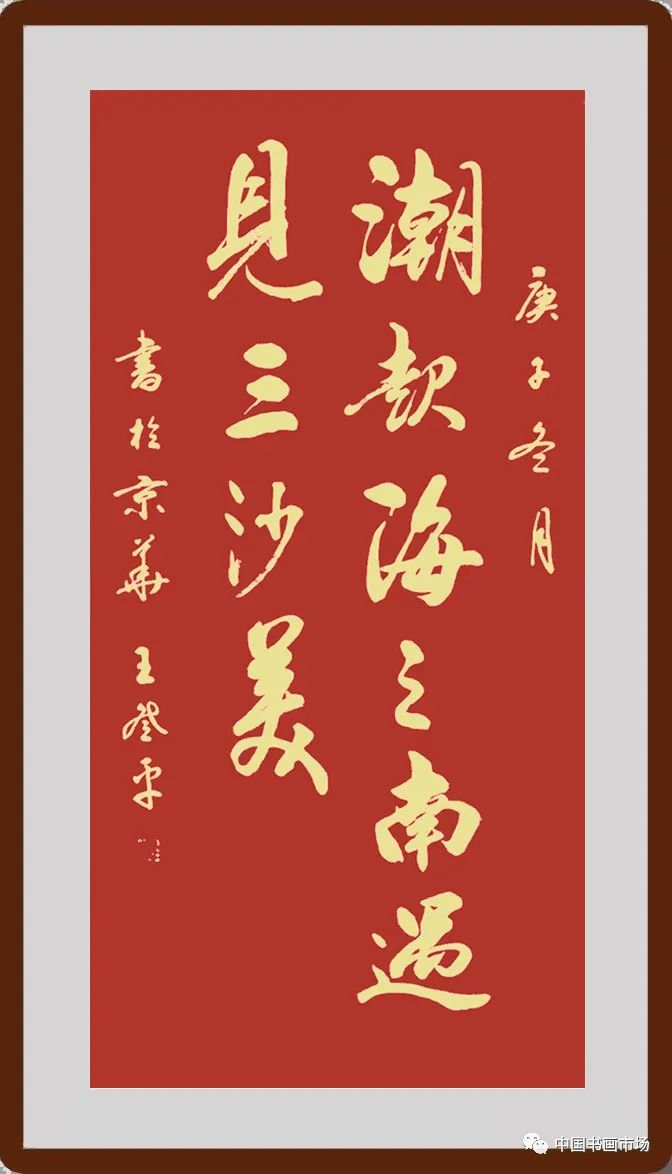 庚子冬月
潮起海之南遇
見三沙美
書於京華 王登平
中国书画市场